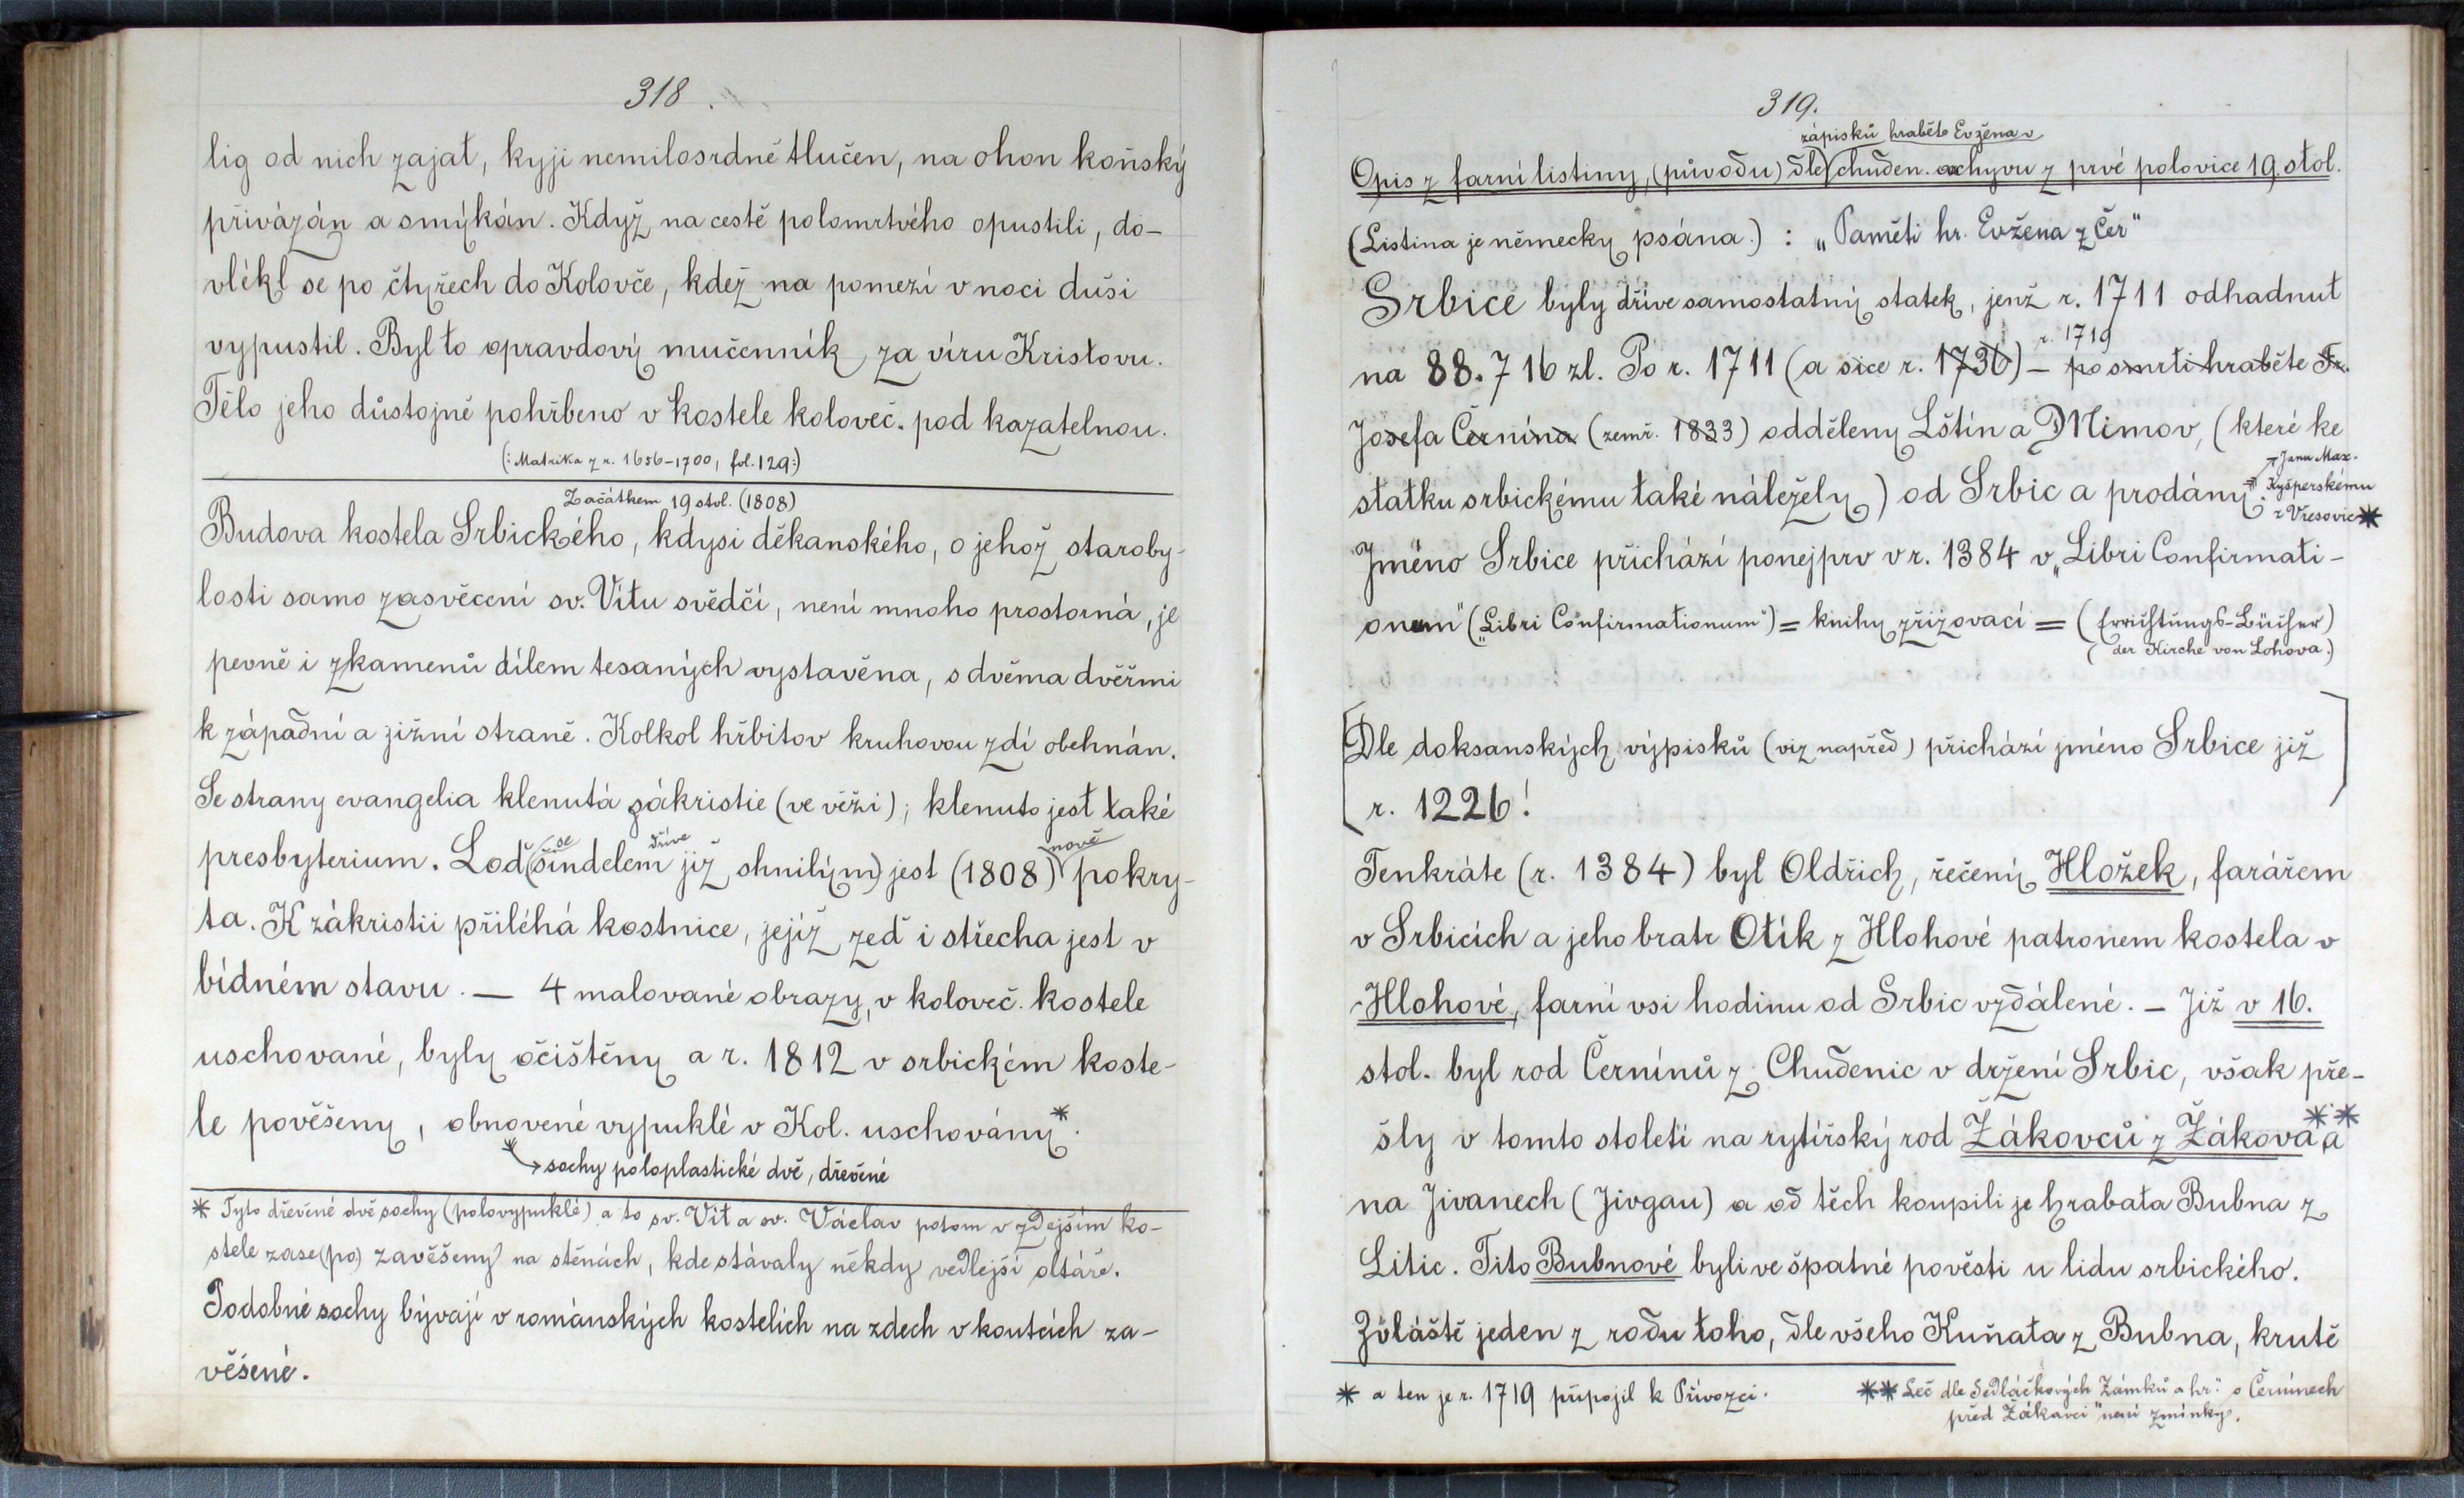 318.
lig od nich zajat, kyji nemilosrdně tlučen, na ohon koňský
přivázán a smýkán. Když na cestě polomrtvého opustili, do-
vlékl se po čtyřech do Kolovče, kdež na pomezí v noci duši
vypustil. Byl to opravdový mučenník za víru Kristovu.
Tělo jeho důstojně pohřbeno v kostele koloveč. pod kazatelnou.
(: Matrika z r. 1656-1700, fol. 129:)
Začátkem 19 stol. (1808)
Budova kostela Srbického, kdysi děkanského, o jehož staroby-
losti samo zasvěcení sv. Vítu svědčí, není mnoho prostorná, je
pevně i z kamenů dílem tesaných vystavěna, s dvěma dvěřmi
k západní a jižní straně. Kolkol hřbitov kruhovou zdí obehnán.
Se strany evangelia klenutá zákristie (ve věži); klenuto jest také
se dříve nově
presbyterium. Loď (šindelem již shnilým) jest (1808) pokry-
ta. K zákristii přiléhá kostnice, jejíž zeď i střecha jest v
bídném stavu. — 4 malované obrazy, v koloveč. kostele
uschované, byly očištěny a r. 1812 v srbickém koste-
le pověšeny, obnovené vypuklé v Kol. uschovány*.
sochy poloplastické dvě, dřevěné
* Tyto dřevěné dvě sochy (polovypuklé) a to sv. Vít a sv. Václav potom v zdejším ko-
stele zase (po) zavěšeny na stěnách, kde stávaly někdy vedlejší oltáře.
Podobné sochy bývají v románských kostelích na zdech v koutcích za-
věšené.
319.
zápisků hraběte Evžena v
Opis z farní listiny, (původu) dle chuden. achyvu z prvé polovice 19. stol.
(Listina je německy psána.) : „Paměti hr. Evžena z Čer"
Srbice byly dříve samostatný statek, jenž r. 1711 odhadnut
r. 1719
na 88.716 zl. Po r. 1711 (a sice r. 1736) — po smrti hraběte Fr.
Josefa Černína (zemř. 1833) odděleny Lštín a Mimov, (které ke
Janu Max.
statku srbickému také náležely) od Srbic a prodány. Kyšperskému
z Vresovic *
Jméno Srbice přichází ponejprv v r. 1384 v „Libri Confirmati-
onum" („Libri Confirmationum") = knihy zřizovací = (Errichtungs-Bücher)
(der Kirche von Lohova.)
Dle doksanských výpisků (viz napřed) přichází jméno Srbice již
r. 1226!
Tenkráte (r. 1384) byl Oldřich, řečený Hložek, farářem
v Srbicích a jeho bratr Otík z Hlohové patronem kostela v
Hlohové, farní vsi hodinu od Srbic vzdálené. — Již v 16.
stol. byl rod Černínů z Chudenic v držení Srbic, však pře-
šly v tomto století na rytířský rod Žákovců z Žákova ** a
na Jivanech (Jivgau) a od těch koupili je hrabata Bubna z
Litic. Tito Bubnové byli ve špatné pověsti u lidu srbického.
Zvláště jeden z rodu toho, dle všeho Kuňata z Bubna, krutě
* a ten je r. 1719 připojil k Přívozci.
** Leč dle Sedláčkových „Zámků a hr." o Černínech
před Žákavci není zmínky.